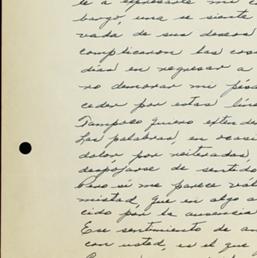 te a expresarte mi c
bargo, una se siente
vada de sus deseos
complicaron las cosa
días en regresar a
no demorar mi pésa
ceder por estas líne
Tampoco quiero extender
Las palabras, en ocasi
dolor por reiteradas,
despójarse de sentido
Pero si me parece val
mistad, que en algo a
cido por la ausencia
Ese sentimiento de am
con usted, es el que